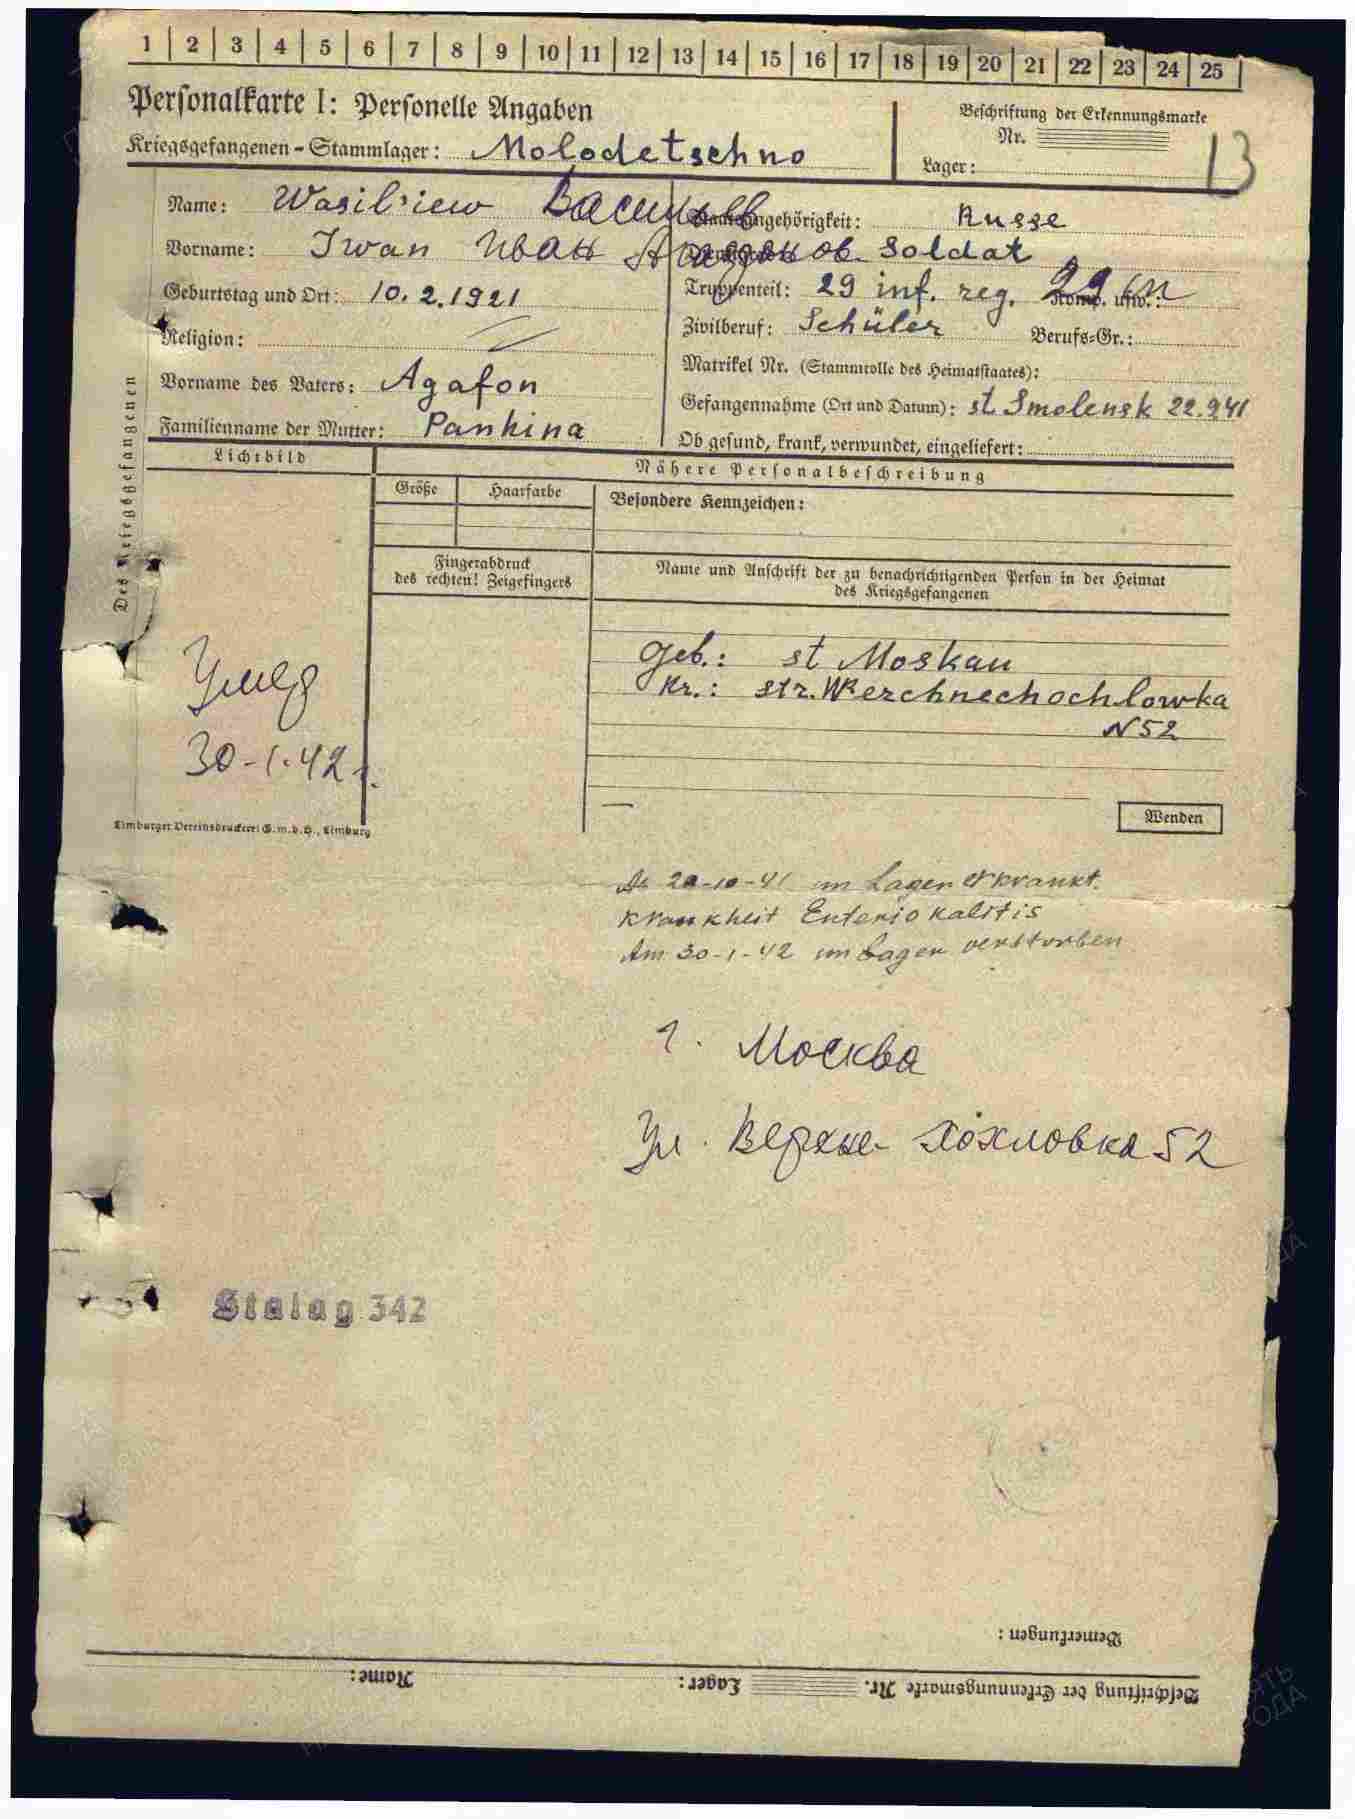 1 2 3 4 5 6 7 8 9 10 11 12 13 14 15 16 17 18 19 20 21 22 23 24 25
Personalkarte I: Personelle Angaben
Kriegsgefangenen-Stammlager: Molodetschno
Beschriftung der Erkennungsmarke
Nr.
Lager:
13
Name: Wasiliew Васильев
Vorname: Iwan Иван
Geburtstag und Ort: 10.2.1921
Religion:
Vorname des Vaters: Agafon
Familienname der Mutter: Panhina
Staatsangehörigkeit: Russe
Soldat
Truppenteil: 29 inf. reg. Komp. usw.:
Zivilberuf: Schüler Berufs-Gr.:
Matrikel Nr. (Stammrolle des Heimatstaates):
Gefangennahme (Ort und Datum): st. Smolensk 22.9 41
Ob gesund, krank, verwundet, eingeliefert:
Des Kriegsgefangenen
Lichtbild
Nähere Personalbeschreibung
Größe
Haarfarbe
Besondere Kennzeichen:
Fingerabdruck
des rechten! Zeigefingers
Name und Anschrift der zu benachrichtigenden Person in der Heimat
des Kriegsgefangenen
Geb.: st Moskau
Kr.: str. Werchnechochlowka
N 52
Умер
30-1-42 г.
Limburger Vereinsdruckerei G.m.b.H., Limburg
Wenden
10-41 im Lager erkrankt.
Krankheit
Am 30-1-42 im Lager verstorben
г. Москва
Ул. Верхне-Хохловка 52
Stalag 342
Bemerkungen:
Beschriftung der Erkennungsmarke Nr. Lager: Name: